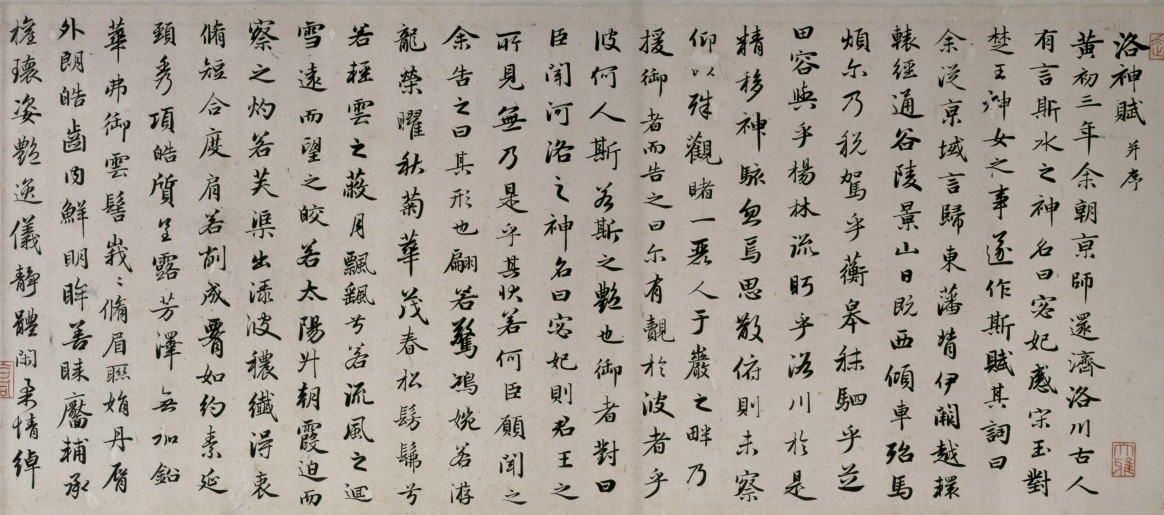 洛神賦 并序
黃初三年余朝京師還濟洛川古人
有言斯水之神名曰宓妃感宋玉對
楚王神女之事遂作斯賦其詞曰
余從京域言歸東藩背伊闕越轘
轅經通谷陵景山日既西傾車殆馬
煩尔乃税駕乎蘅皋秣駟乎芝
田容與乎楊林流眄乎洛川於是
精移神駭忽焉思散俯則未察
仰以殊觀睹一麗人于巖之畔乃
援御者而告之曰尓有覿於彼者乎
彼何人斯若斯之艷也御者對曰
臣聞河洛之神名曰宓妃則君王之
所見無乃是乎其状若何臣願聞之
余告之曰其形也翩若驚鴻婉若游
龍榮曜秋菊華茂春松髣髴兮
若輕雲之蔽月飄飖兮若流風之迴
雪遠而望之皎若太陽升朝霞迫而
察之灼若芙渠出渌波穠纖得衷
脩短合度肩若削成腰如約素延
頸秀項皓質呈露芳澤無加鉛
華弗御雲髻峩〻脩眉聯娟丹脣
外朗皓齒内鮮明眸善睞靨輔承
權瓌姿艷逸儀靜體閑柔情綽
大雅